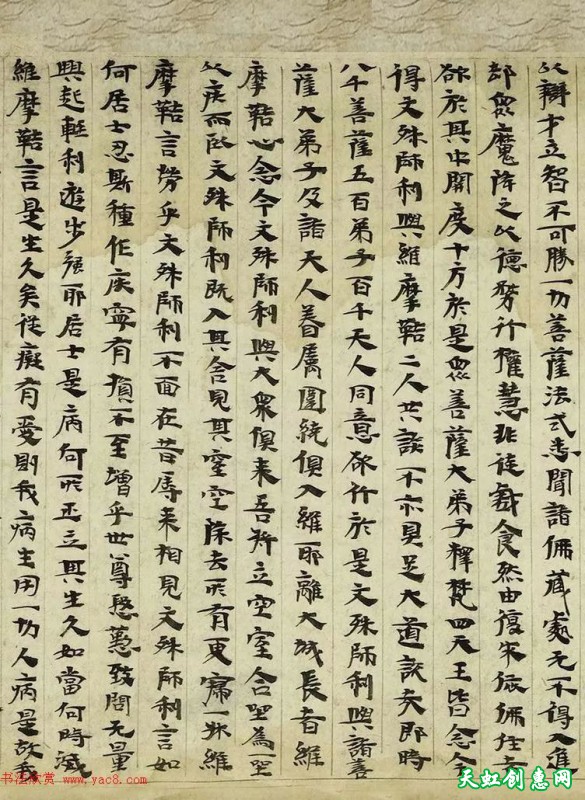 以辯才立智不可勝一切菩薩法式悉聞諸佛藏處无不得入進
却眾魔降之以德勞行權慧非徒戲食然由復求依佛住者
欲於其中開度十方於是眾菩薩大弟子釋梵四天王皆念今
得文殊師利與維摩鞊二人共談不亦具足大道說矣即時
八千菩薩五百弟子百千天人同意欲行於是文殊師利與諸菩
薩大弟子及諸天人眷屬圍繞俱入維耶離大城長者維
摩鞊心念今文殊師利與大眾俱來吾將立空室合坐為一坐
以疾而臥文殊師利既入其舍見其室空除去所有更寢一牀維
摩鞊言勞乎文殊師利不面在昔辱來相見文殊師利言如
何居士忍斯種作疾寧有損不至增乎世尊慇懃致問无量
興起輕利遊步強耶居士是病何所正立其生久如當何時滅
維摩鞊言是生久矣從癡有愛則我病生用一切人病是故我
书法欣赏 www.yac8.com
天虹创意网